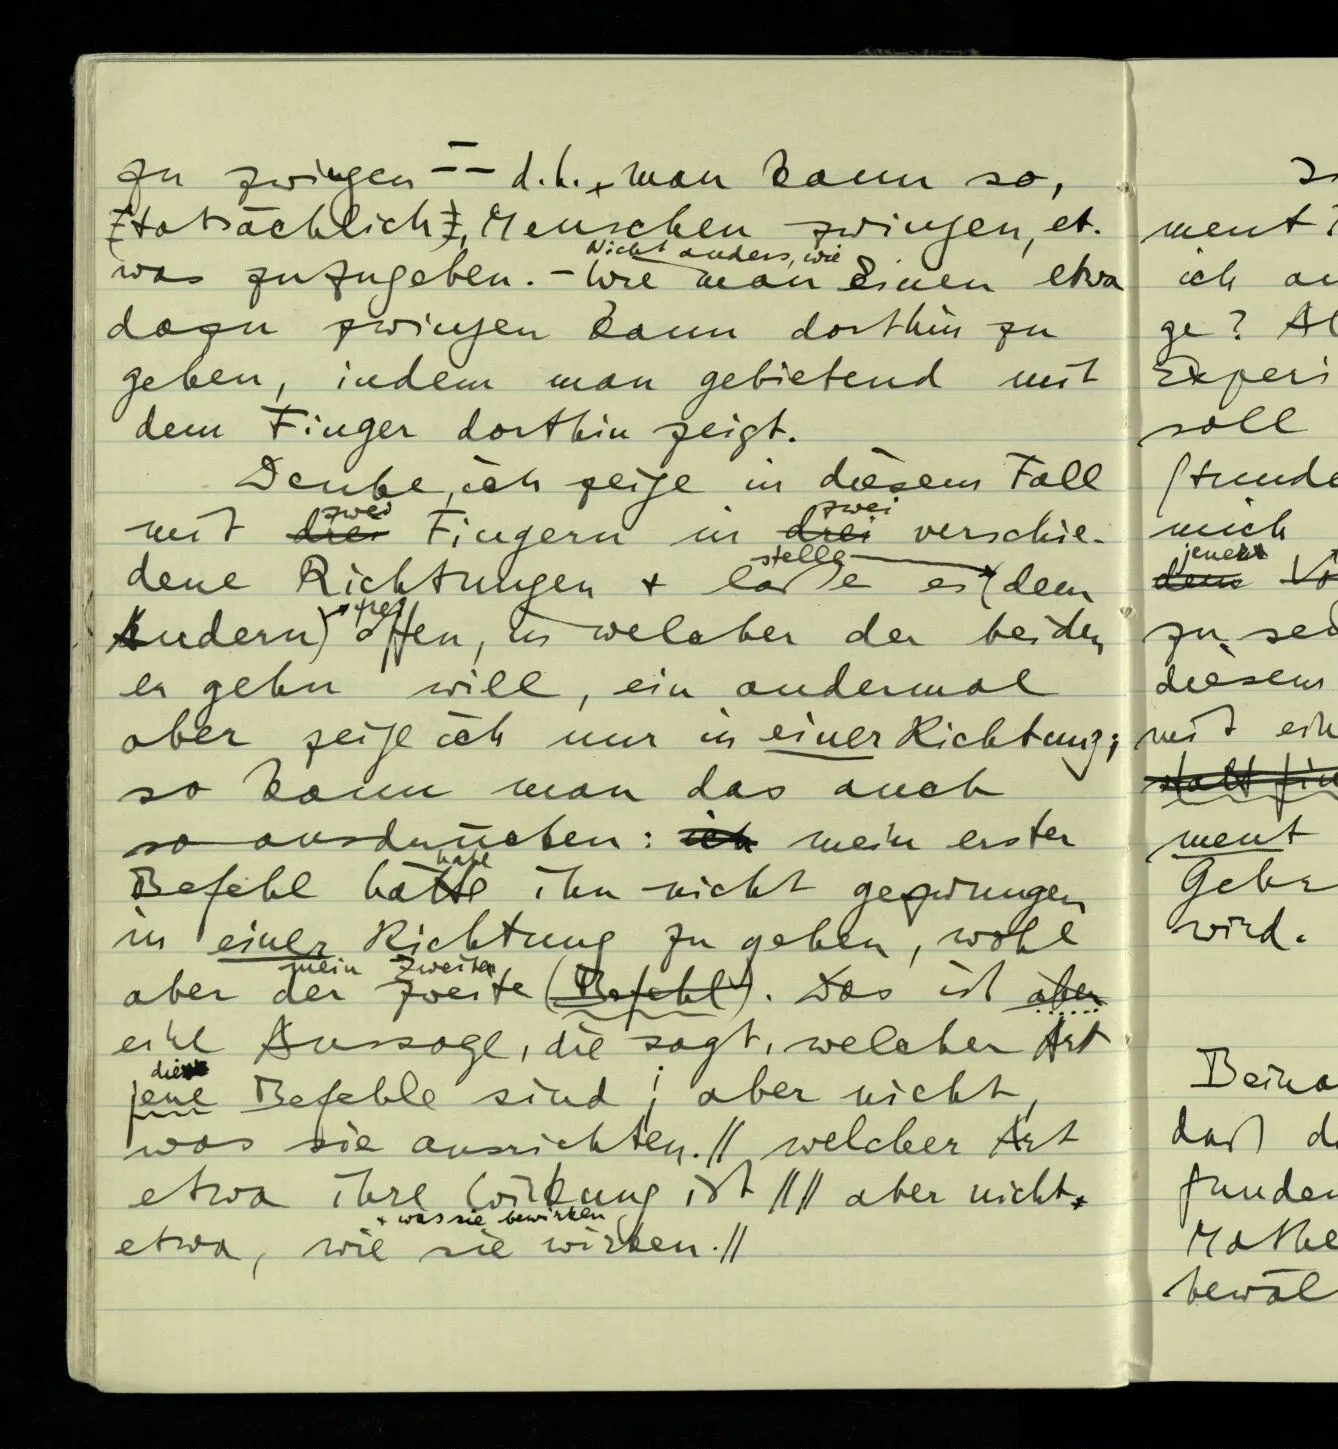 zu zwingen – – d.h., man kann so,
(tatsächlich), Menschen zwingen, et-
was zuzugeben. – Wie man Einen etwa
Nicht anders, wie
dazu zwingen kann dorthin zu
gehen, indem man gebietend mit
dem Finger dorthin zeigt.
Denke, ich zeige in diesem Fall
zwei zwei
mit drei Fingern in drei verschie-
stelle
dene Richtungen + lasse es (dem
frei
Andern) offen, in welcher der beiden
er gehn will, ein andermal
aber zeige ich nur in einer Richtung;
so kann man das auch
so ausdrücken: ich mein erster
habe
Befehl hätte ihn nicht gezwungen
in einer Richtung zu gehen, wohl
mein zweiter
aber der zweite (Befehl). Das ist aber
eine Aussage, die sagt, welcher Art
diese
jene Befehle sind; aber nicht,
was sie ausrichten. // welcher Art
etwa ihre Wirkung ist //// aber nicht
+ was sie bewirken
etwa, wie sie wirken. //
ment
ich
ge?
Experi
soll
mich
jenem
dem
zu
diesem
mit
statt
ment
Gebr
wird.
Beina
daß
funden
Mathe
bewäl